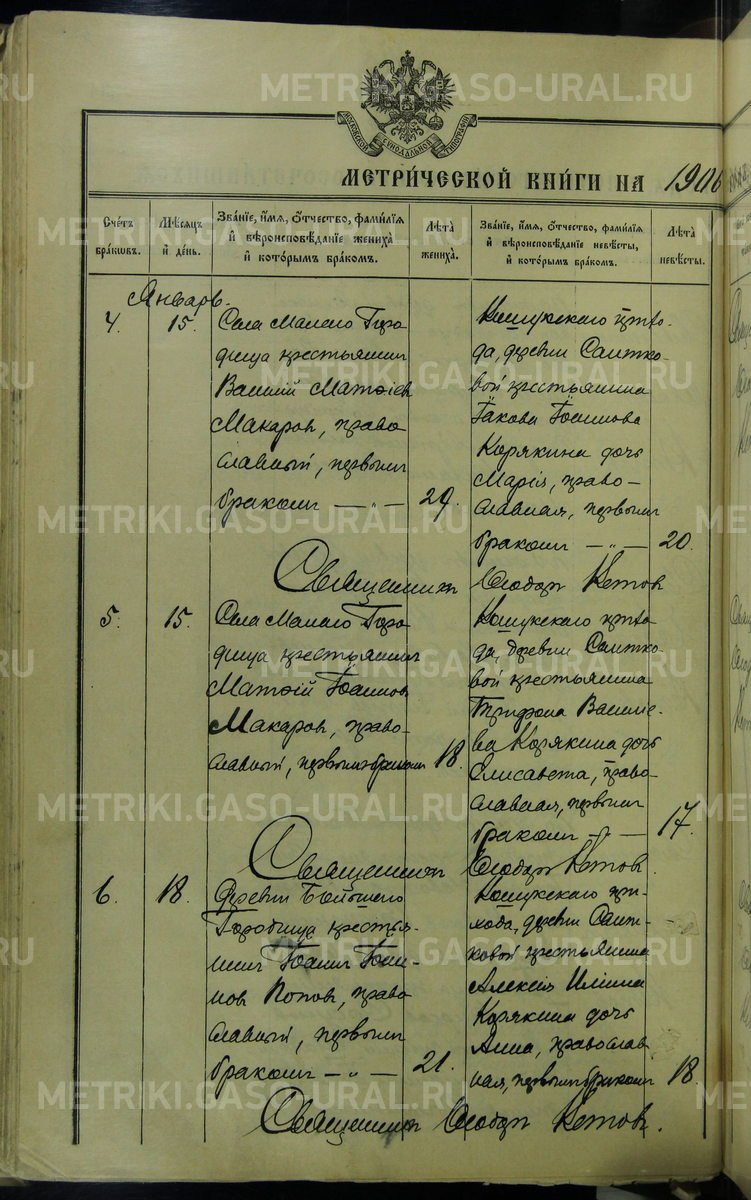 МОСКОВСКОЙ СѴНОДАЛЬНОЙ ТИПОГРАФІИ
МЕТРИ́ЧЕСКОЙ КНИ́ГИ НА 1906
Сче́тъ бра́кѡвъ.
Мѣ́сяцъ и҆ де́нь.
Зва́нїе, и҆́мя, ѻ҆́тчество, фами́лїя и҆ вѣроисповѣ́данїе жениха̀ и҆ кото́рымъ бра́комъ.
Лѣ́та жениха̀.
Зва́нїе, и҆́мя, ѻ҆́тчество, фами́лїя и҆ вѣроисповѣ́данїе невѣ́сты, и҆ кото́рымъ бра́комъ.
Лѣ́та невѣ́сты.
Январь.
4.
15.
Села Малаго Горо
дища крестьянинъ
Василій Матѳіев
Макаров, право
славный, первымъ
бракомъ — „ —
29.
Кошукскаго прихо-
да, деревни Саитко-
вой крестьянина
Іакова Іоаннова
Корякина дочь
Марія, право-
славная, первымъ
бракомъ — „ —
20.
Священникъ Ѳеодоръ Кетовъ
5.
15.
Села Малаго Горо
дища крестьянинъ
Матѳій Іоаннов
Макаров, право-
славный, первымъ бракомъ
18.
Кошукскаго прихо
да, деревни Саитко-
вой крестьянина
Трифона Василіе-
ва Корякина дочь
Елисавета, право-
славная, первымъ
бракомъ — „ —
17.
Священникъ Ѳеодоръ Кетовъ.
6.
18.
Деревни Большаго
Городища крестья-
нинъ Іоаннъ Іоан-
новъ Поповъ, право
славный, первымъ
бракомъ — „ —
21.
Кошукскаго при-
хода, деревни Саит-
ковой крестьянина
Алексія Иліина
Корякина дочь
Анна, православ
ная, первымъ бракомъ
18.
Священникъ Ѳеодоръ Кетовъ.
METRIKI.GASO-URAL.RU